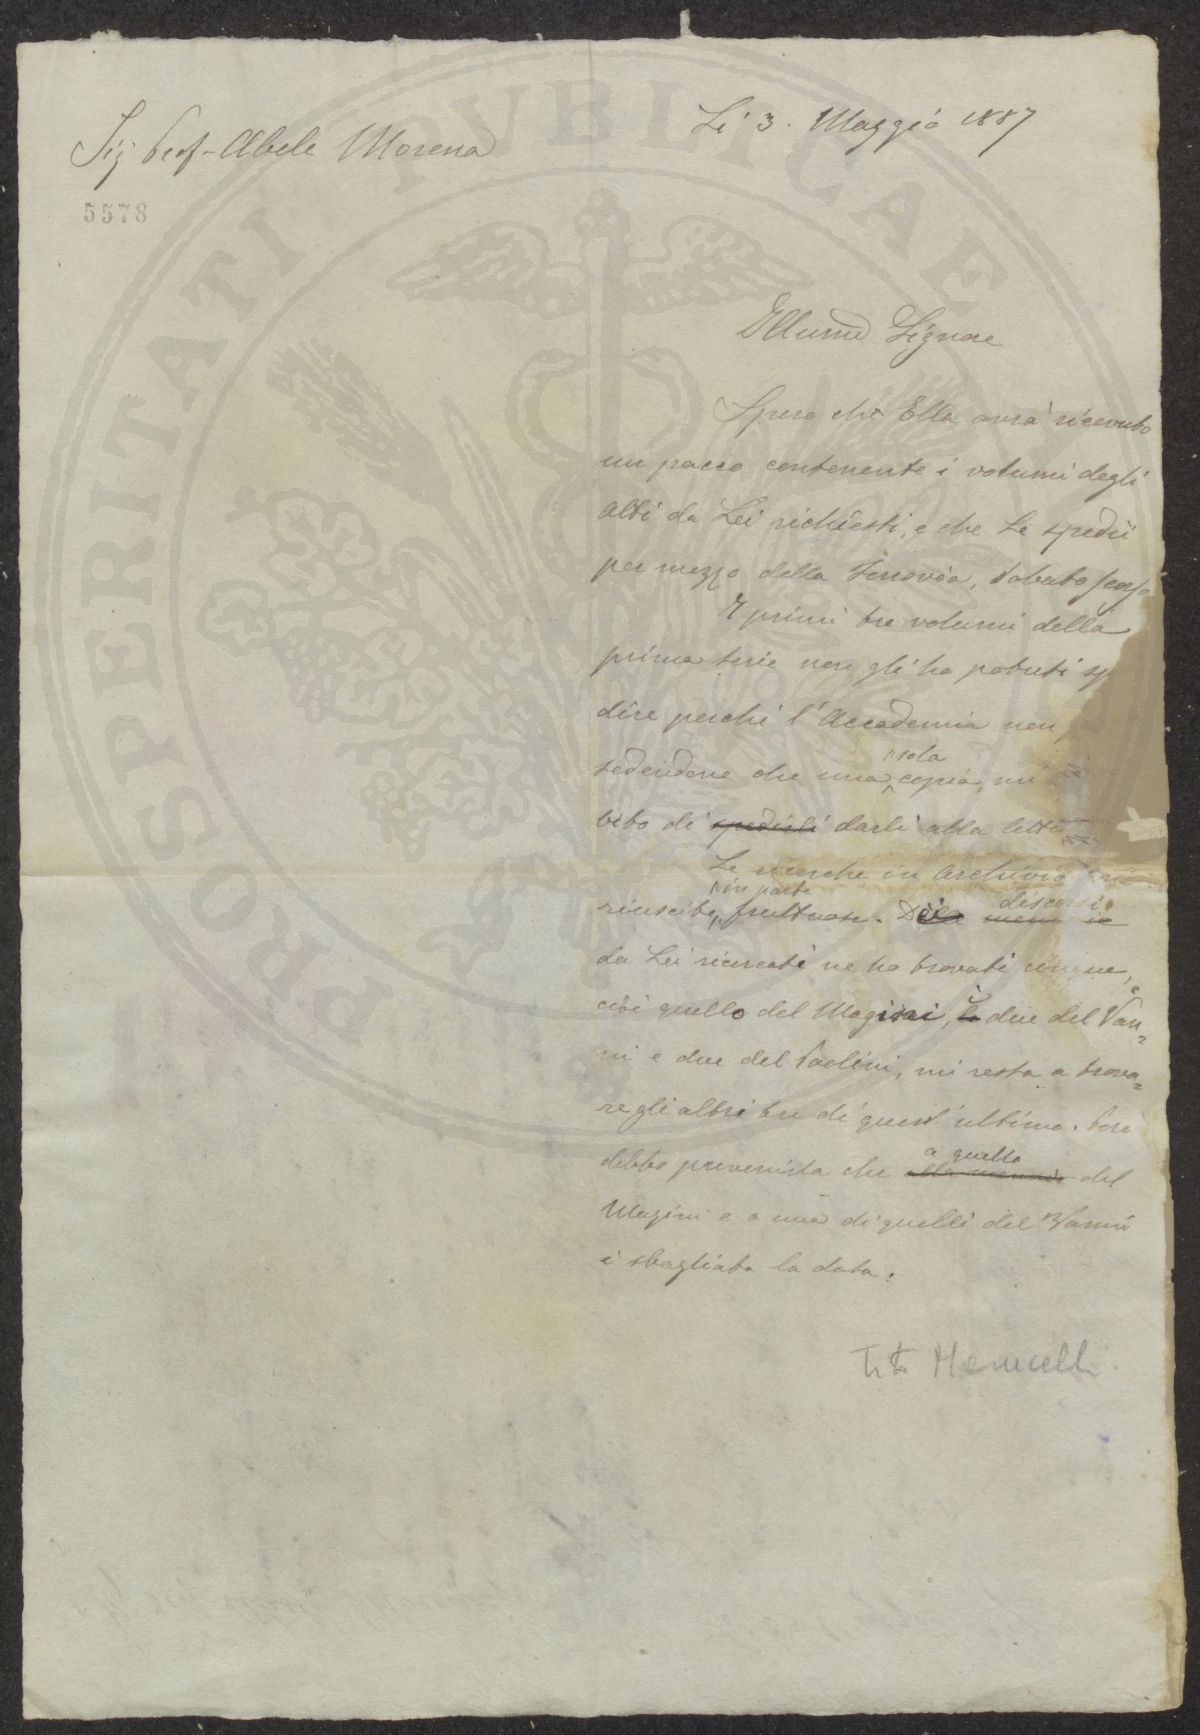 Li 3. Maggio 1887
Sig Prof. Abele Morena
5578
PROSPERITATI PVBLICAE
Illumo Signore
Spero che Ella avrà ricevuto
un pacco contenente i volumi degli
Atti da Lei richiesti, e che Le spedii
per mezzo della Ferrovia, Sabato scorso
I primi tre volumi della
prima serie non gli ho potuti sp
dire perchè l'Accademia non
sedendone che una sola copia, mi
bito di spedirli darli alla lettu
Le ricerche in Archivio
riuscite, in parte fruttuose. Dei discorsi
da Lei ricercati ne ho trovati cinque,
cioè quello del Magini, i due del Van=
ni e due del Paolini, mi resta a trova=
re gli altri tre di quest'ultimo. Però
debbo prevenirla che a quello del
Magini e a uno di quelli del Vanni
è sbagliata la data.